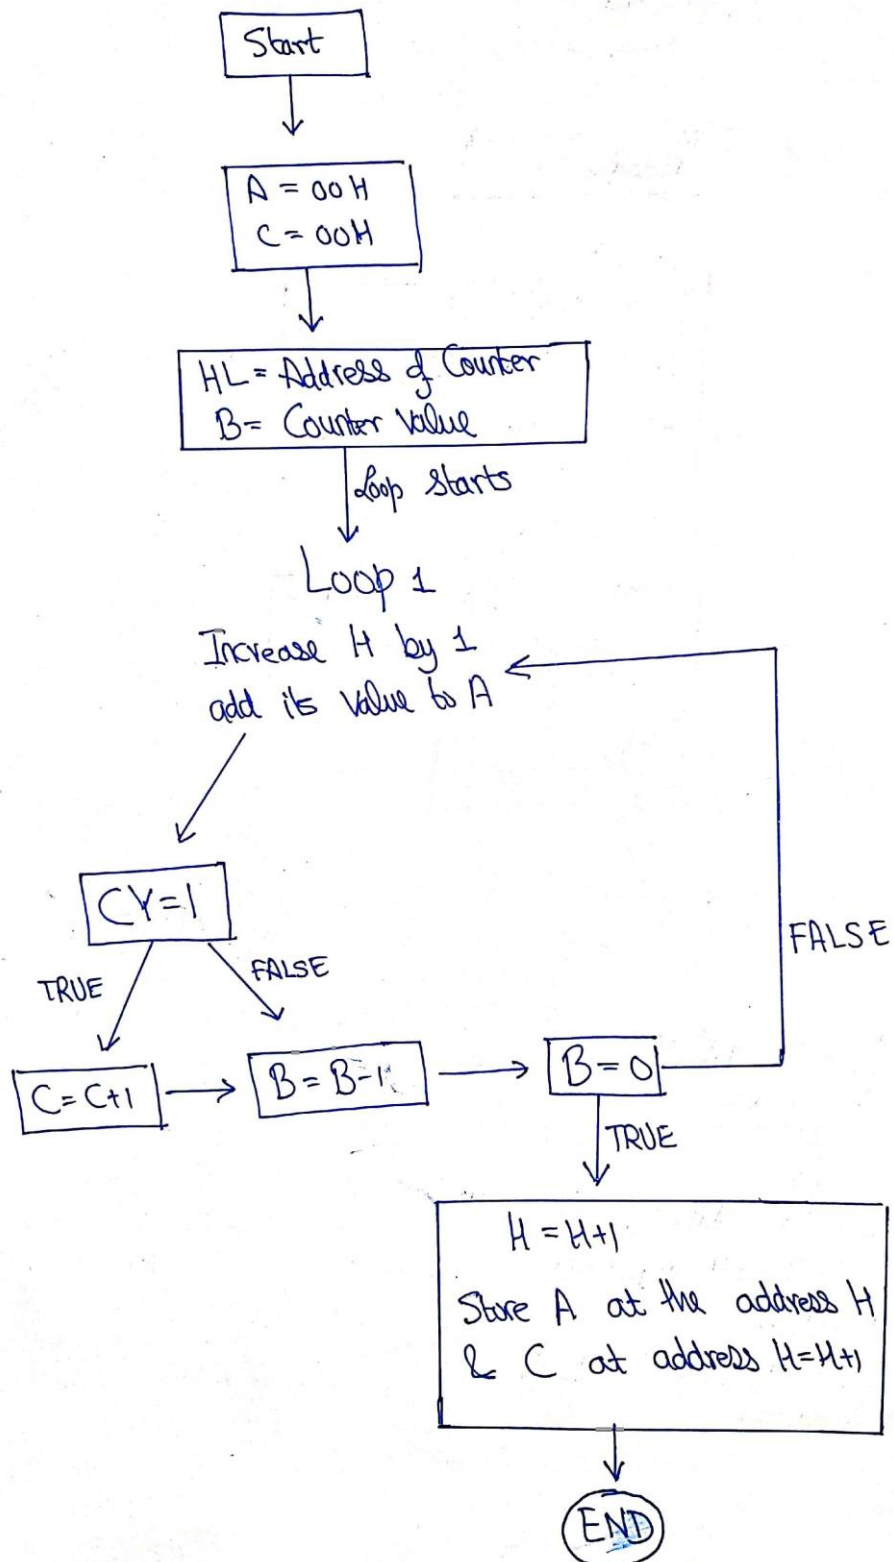 Start
A = 00H
C = 00H
HL = Address of Counter
B = Counter Value
Loop starts
Loop 1
Increase H by 1
add its value to A
CY=1
TRUE
FALSE
C = C+1
B = B-1
B = 0
FALSE
TRUE
H = H+1
Store A at the address H
& C at address H=H+1
END